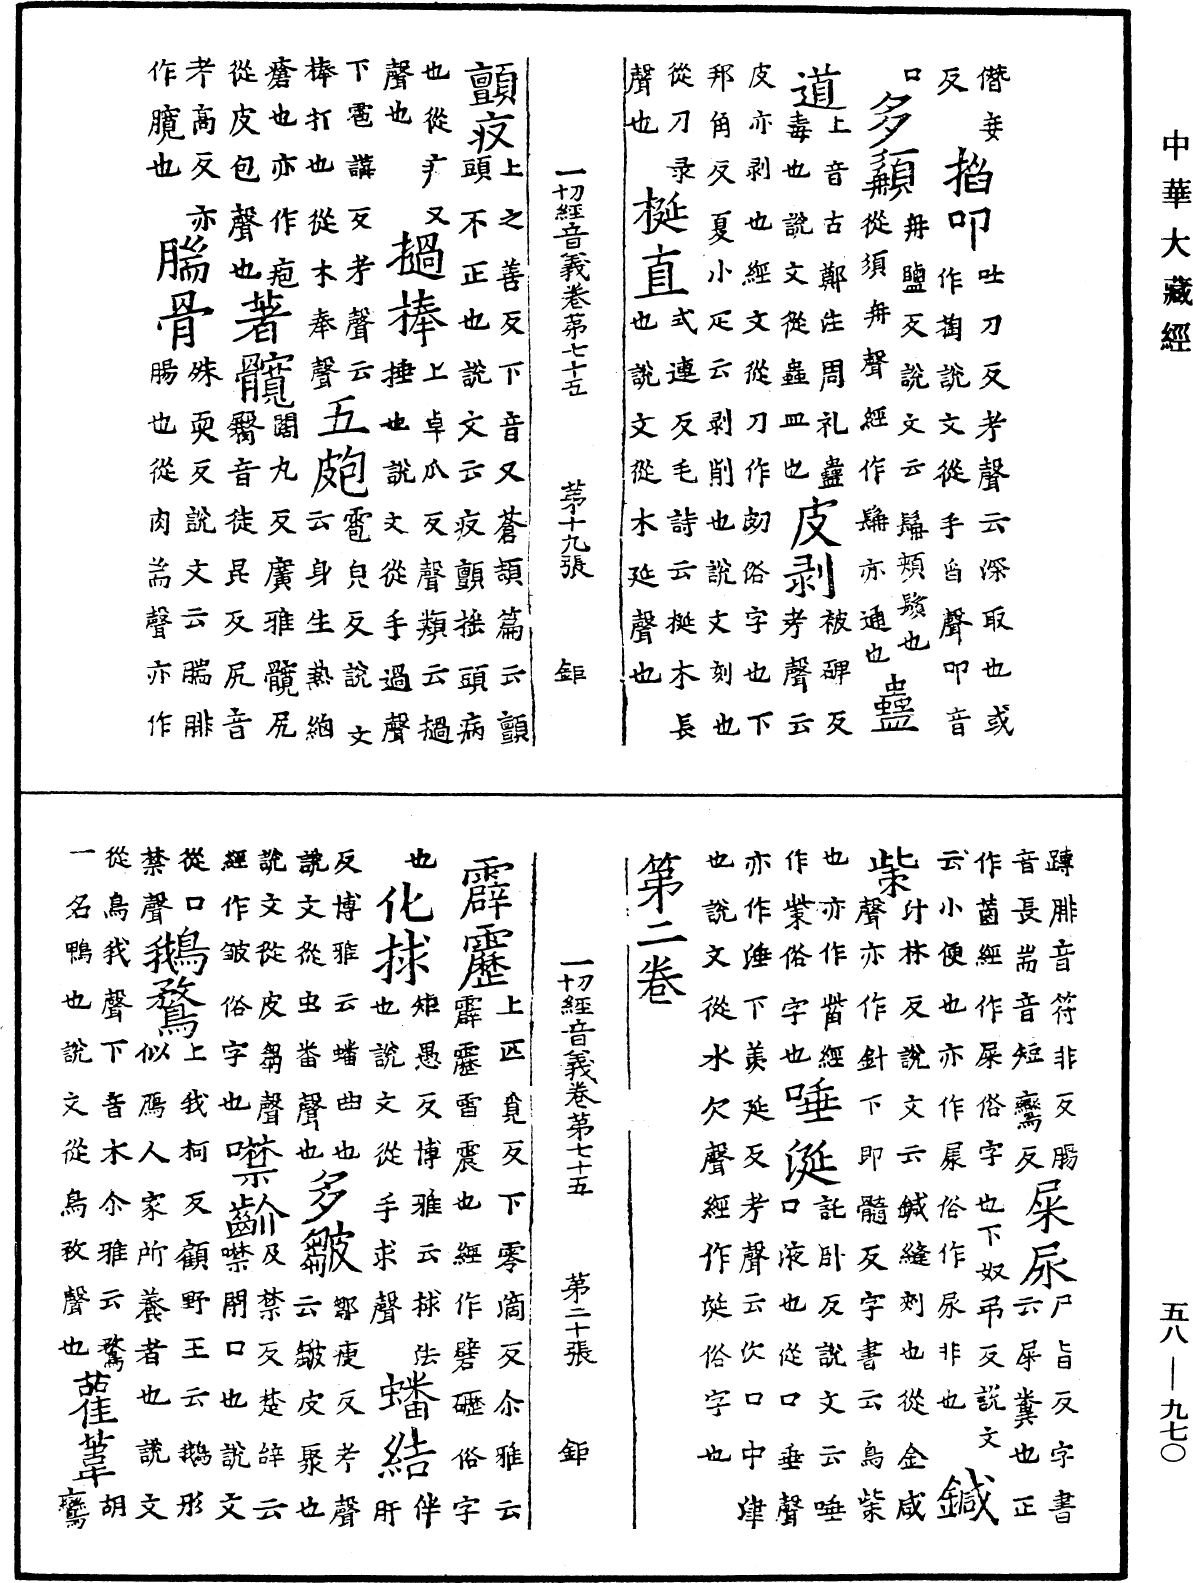 中華大藏經
僭妾
反 掐叩吐刀反考聲云深取也或作掏說文從手臽聲叩音
口 多䫇冉鹽反說文云䫇頰鬚也
從須冉聲經作髯亦通也 蠱
道上音古鄭注周礼蠱毒也說文從蟲皿也 皮剥被碑反考聲云
皮亦剥也經文從刀作㓟俗字也下
邦角反夏小疋云剥削也說文刻也
從刀彔聲也 梴直式連反毛詩云梴木長
也說文從木延聲也
一切經音義卷第七十五 苐十九張 鉅
顫疚上之善反下音又蒼頡篇云顫
頭不正也說文云疚顫搖頭病
也從疒又聲也 撾棒上卓瓜反聲類云撾
捶也說文從手過聲
下雹講反考聲云
棒打也從木奉聲 五皰雹皃反說文
云身生熱細
瘡也亦作疱
從皮包聲也 著髖闊九反廣雅髖尻
臀音徒昆反尻音
考高反亦
作臗也 腨骨殊耎反說文云腨腓
腸也從肉耑聲亦作
蹲腓音符非反腸
音長耑音短鸞反 屎尿尸旨反字書
云屎糞也正
作𦳊經作屎俗字也下奴弔反說文
云小便也亦作㞙俗作尿非也 鍼
𣐋汁林反說文云鍼縫刺也從金咸
聲亦作針下即髓反字書云鳥𣐋
也亦作觜經
作𣐋俗字也 唾涎託卧反說文云唾
口液也從口垂聲
亦作涶下羡延反考聲云㳄口中津
也說文從水欠聲經作㳂俗字也
第二卷
一切經音義卷第七十五 第二十張 鉅
霹靂上匹覓反下零滴反尒雅云
霹靂雷震也經作礔礰俗字
也 化捄矩愚反博雅云捄法
也說文從手求聲 蟠結伴肝
反博雅云蟠曲也
說文從虫番聲也 多皺鄒瘦反考聲
云皺皮聚也
說文從皮芻聲
經作皱俗字也 噤齘及禁反楚辞云
噤閉口也說文
從口禁聲 鵝鶩上我柯反顧野王云鵝形
似鴈人家所養者也說文
從鳥我聲下音木尒雅云鶩
一名鴨也說文從鳥敄聲也 雚葦胡
鸞
五八—九七〇